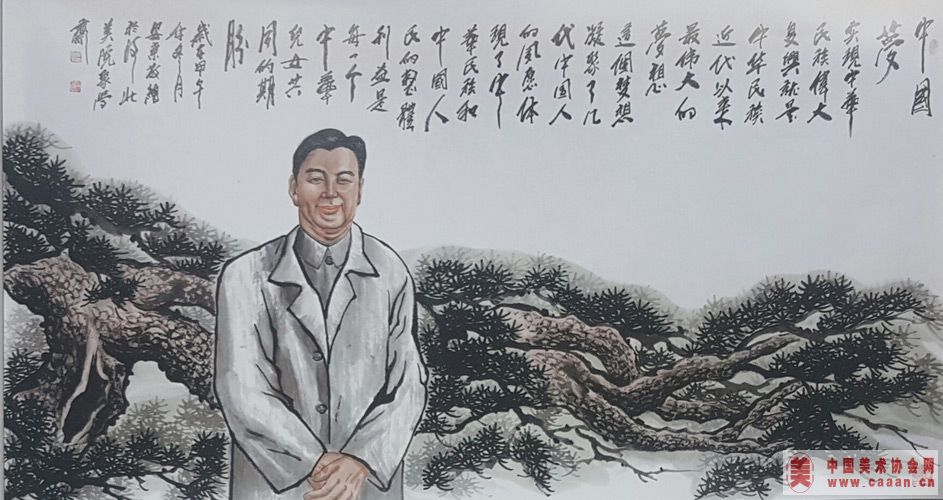 中國
梦
实現中華
民族偉大
复興就是
中华民族
近代以來
最偉大的
夢想
這個夢想
凝聚了几
代中国人
的夙愿体
現了中
華民族和
中國人
民的整體
利益是
每一个
中華
兒女共
同的期
盼
歲在甲午
年冬月
於河北
美院
美 中国美术协会网
www.caaan.cn